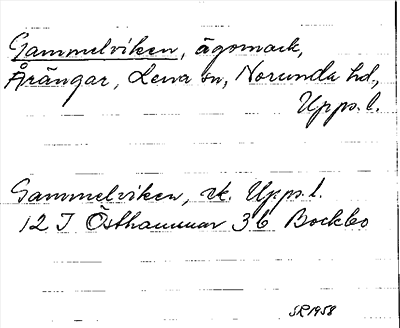 Gammelviken, ägomark,
Årängar, Lena sn, Norunda hd,
Upps. l.
Gammelviken, vk. Upps. l.
12 I Östhammar 36 Bockbo
SR 1958